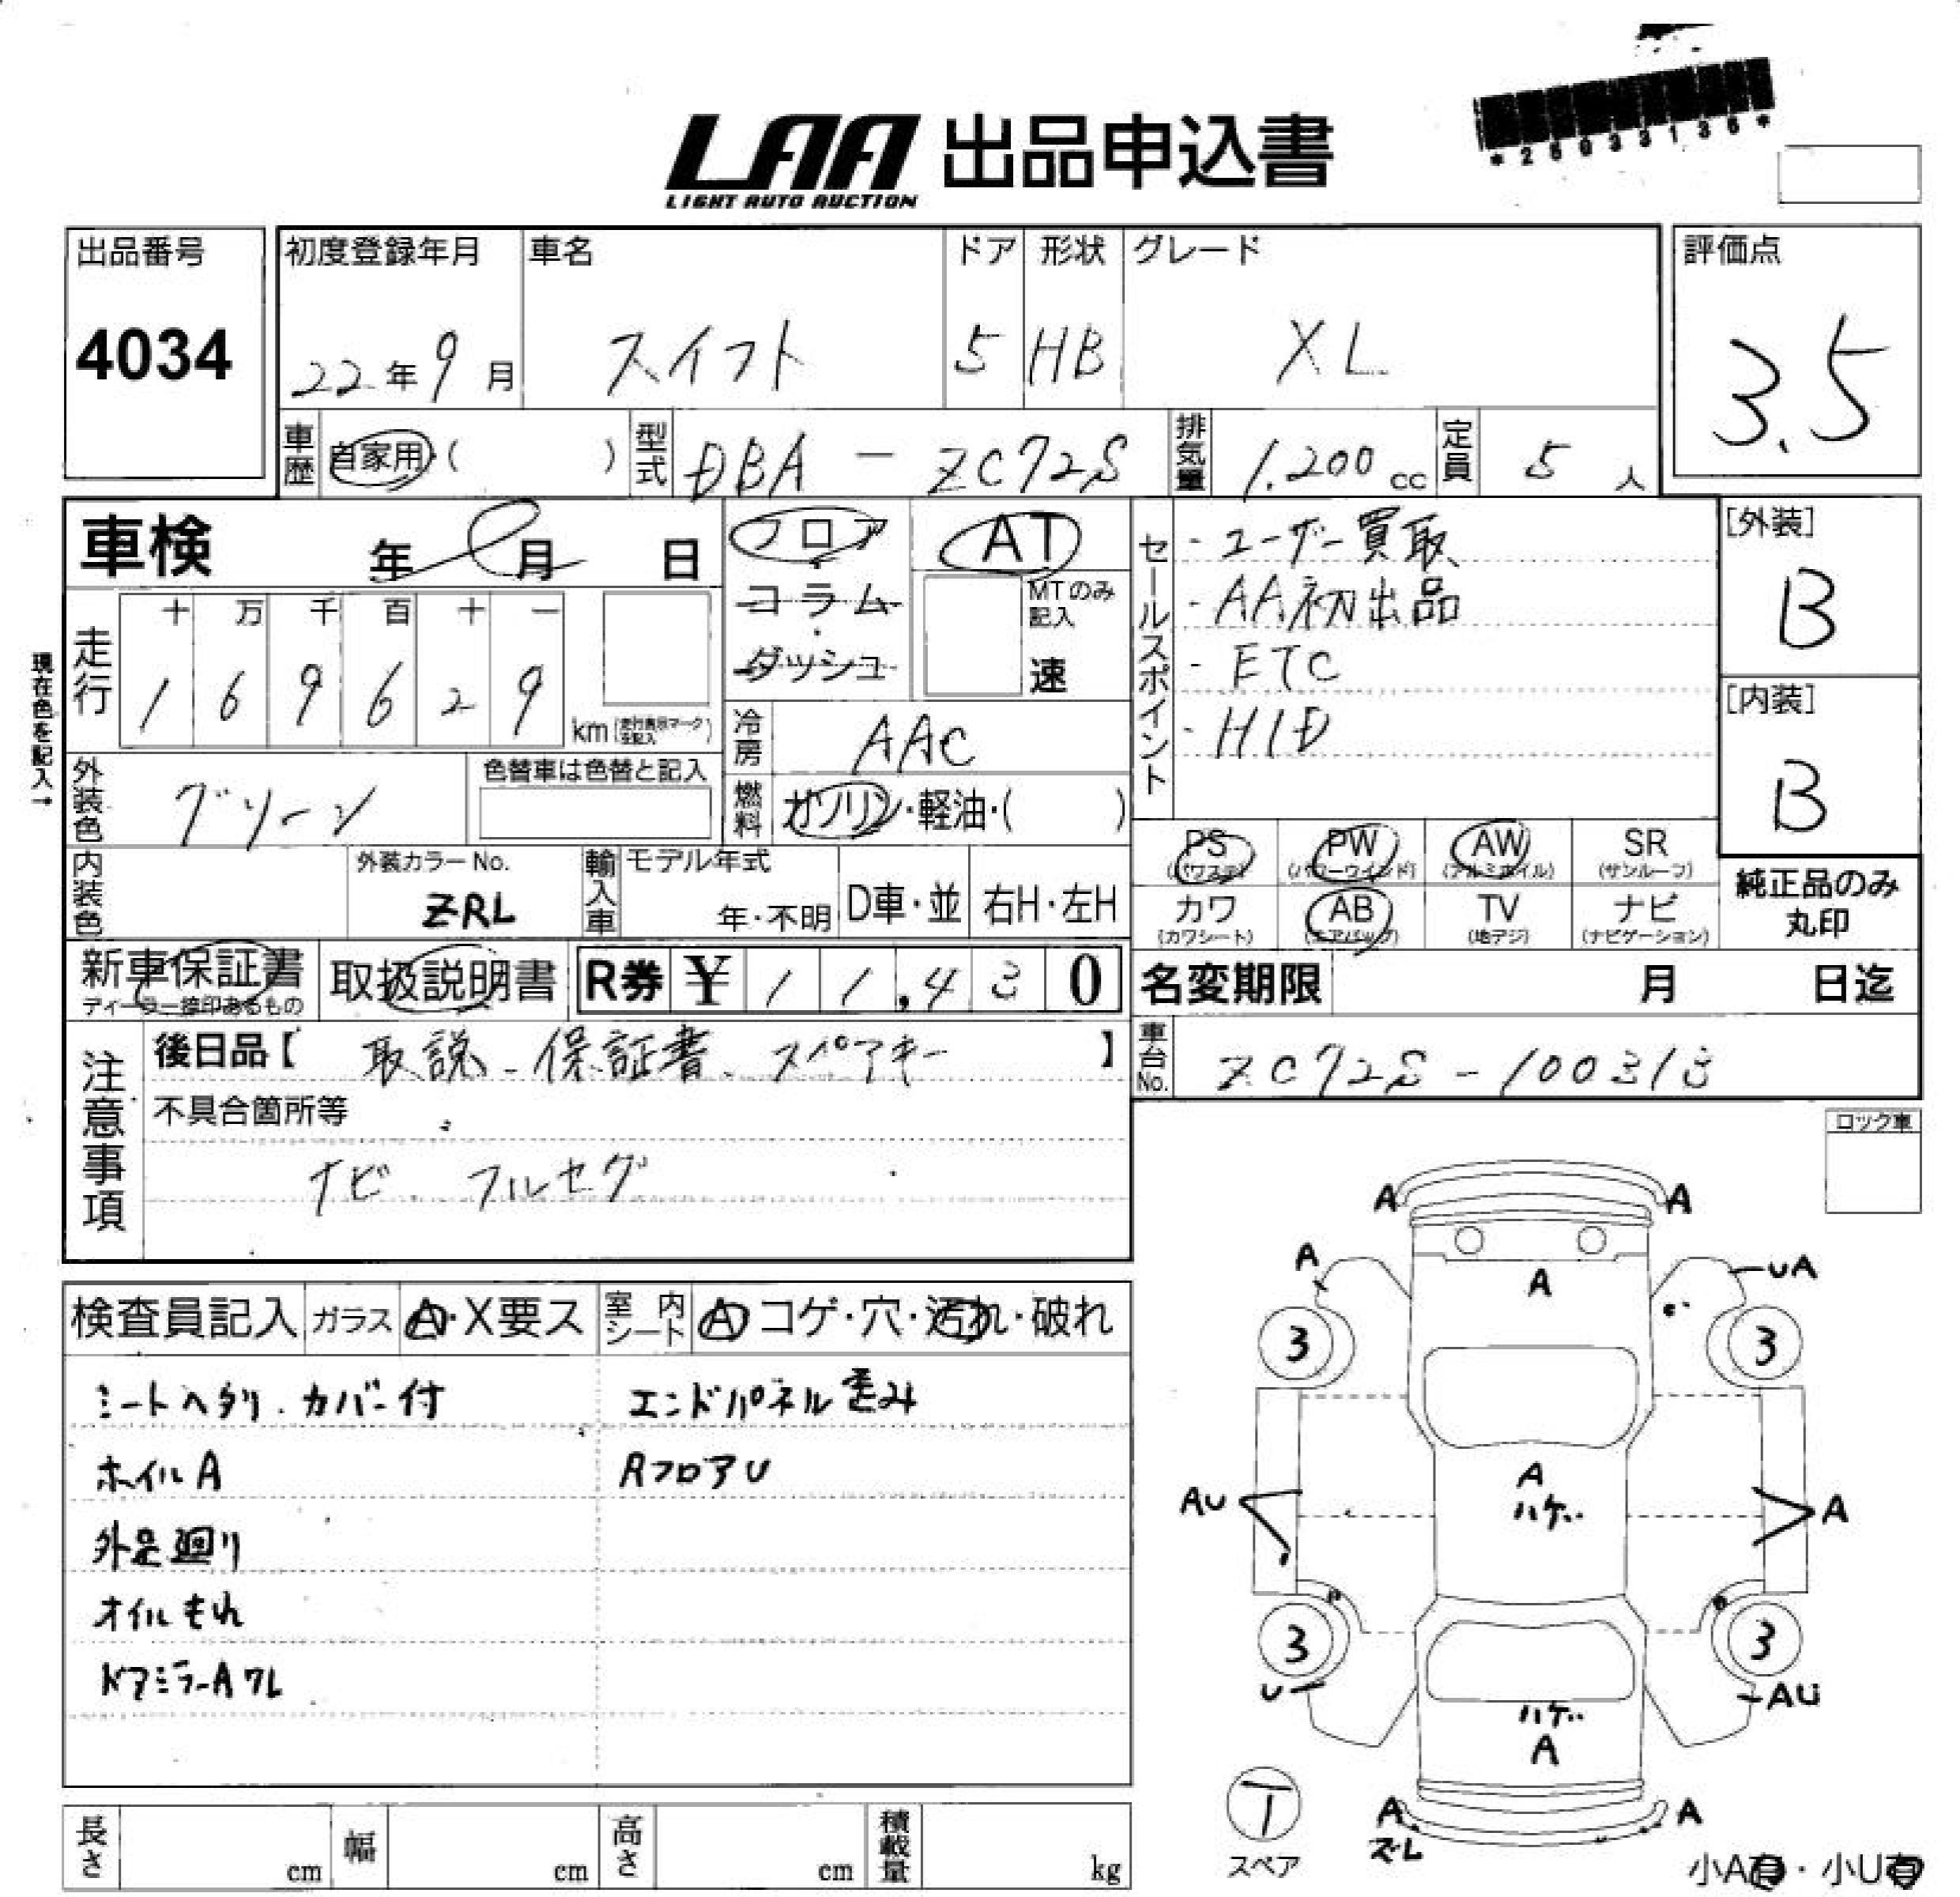 LAA 出品申込書
LIGHT AUTO AUCTION
出品番号
4034
初度登録年月
22年9月
車名
スイフト
ドア
5
形状
HB
グレード
XL
評価点
3.5
車歴
自家用・( )
型式
DBA - ZC72S
排気量
1,200 cc
定員
5 人
車検 年 月 日
フロア・コラム・ダッシュ
AT
MTのみ記入
速
セールスポイント
・ユーザー買取
・AA初出品
・ETC
・HID
[外装]
B
[内装]
B
現在色を記入→
走行
十 万 千 百 十 一
1 6 9 6 2 9
km
冷房
AAC
燃料
ガソリン・軽油・( )
外装色
グリーン
色替車は色替と記入
内装色
外装カラーNo.
ZRL
輸入車
モデル年式
年・不明
D車・並
右H・左H
PS
(パワステ)
PW
(パワーウインド)
AW
(アルミホイル)
SR
(サンルーフ)
カワ
(カワシート)
AB
(エアバッグ)
TV
(地デジ)
ナビ
(ナビゲーション)
純正品のみ
丸印
新車保証書
ディーラー捺印あるもの
取扱説明書
R券 ¥ 1 1,4 3 0
名変期限 月 日迄
注意事項
後日品【 取説、保証書、スペアキー 】
車台No.
ZC72S - 100313
不具合箇所等
ナビ フルセグ
ロック車
検査員記入
ガラス
A・X要ス
室内シート
A コゲ・穴・汚れ・破れ
シートヘタリ、カバー付
エンドパネル歪み
ホイルA
RフロアU
外足廻り
オイルもれ
ドアミラーAワレ
A A
A A UA
3 3
A
ハゲ
AU A
3 3
U AU
ハゲ
A
A A
ズレ
スペア
小A有・小U有
長さ cm
幅 cm
高さ cm
積載量 kg